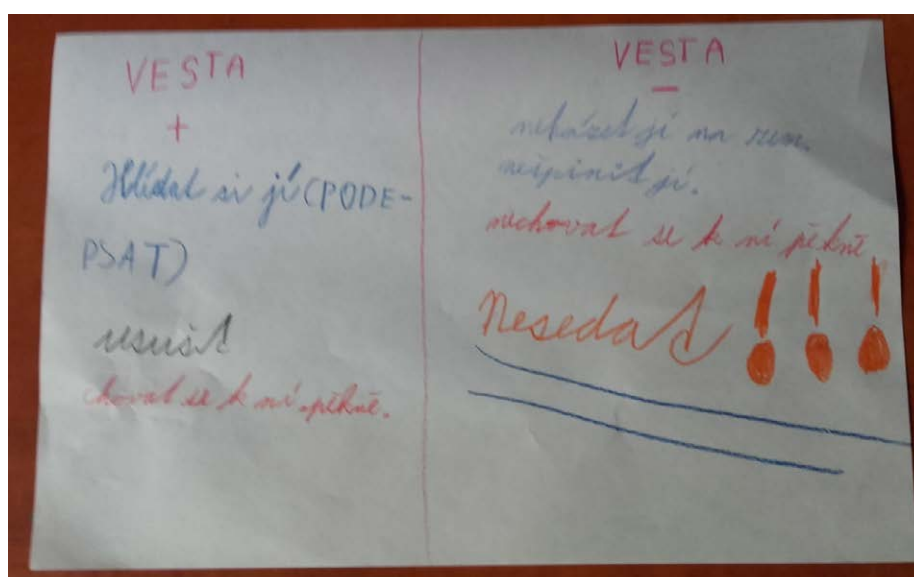 VESTA
+
Hlídat si jí (PODE-
PSAT)
usušit
chovat se k ní pěkně.
VESTA
-
neházet jí na zem.
nešpinit jí.
nechovat se k ní pěkně
Nesedat !!!